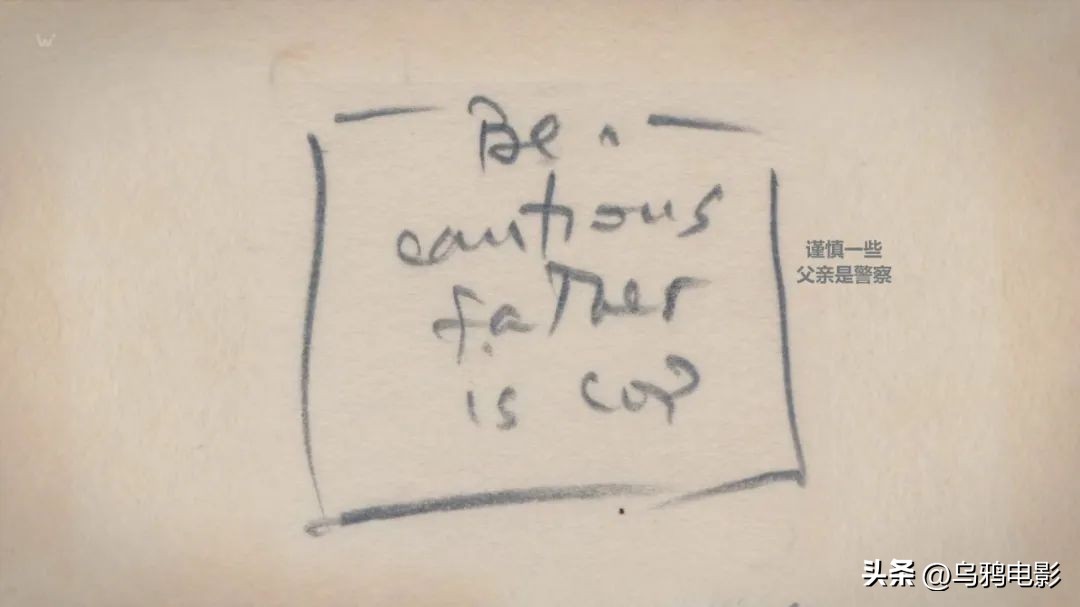 W
Be
cautious
father
is cop
谨慎一些
父亲是警察
头条 @乌鸦电影